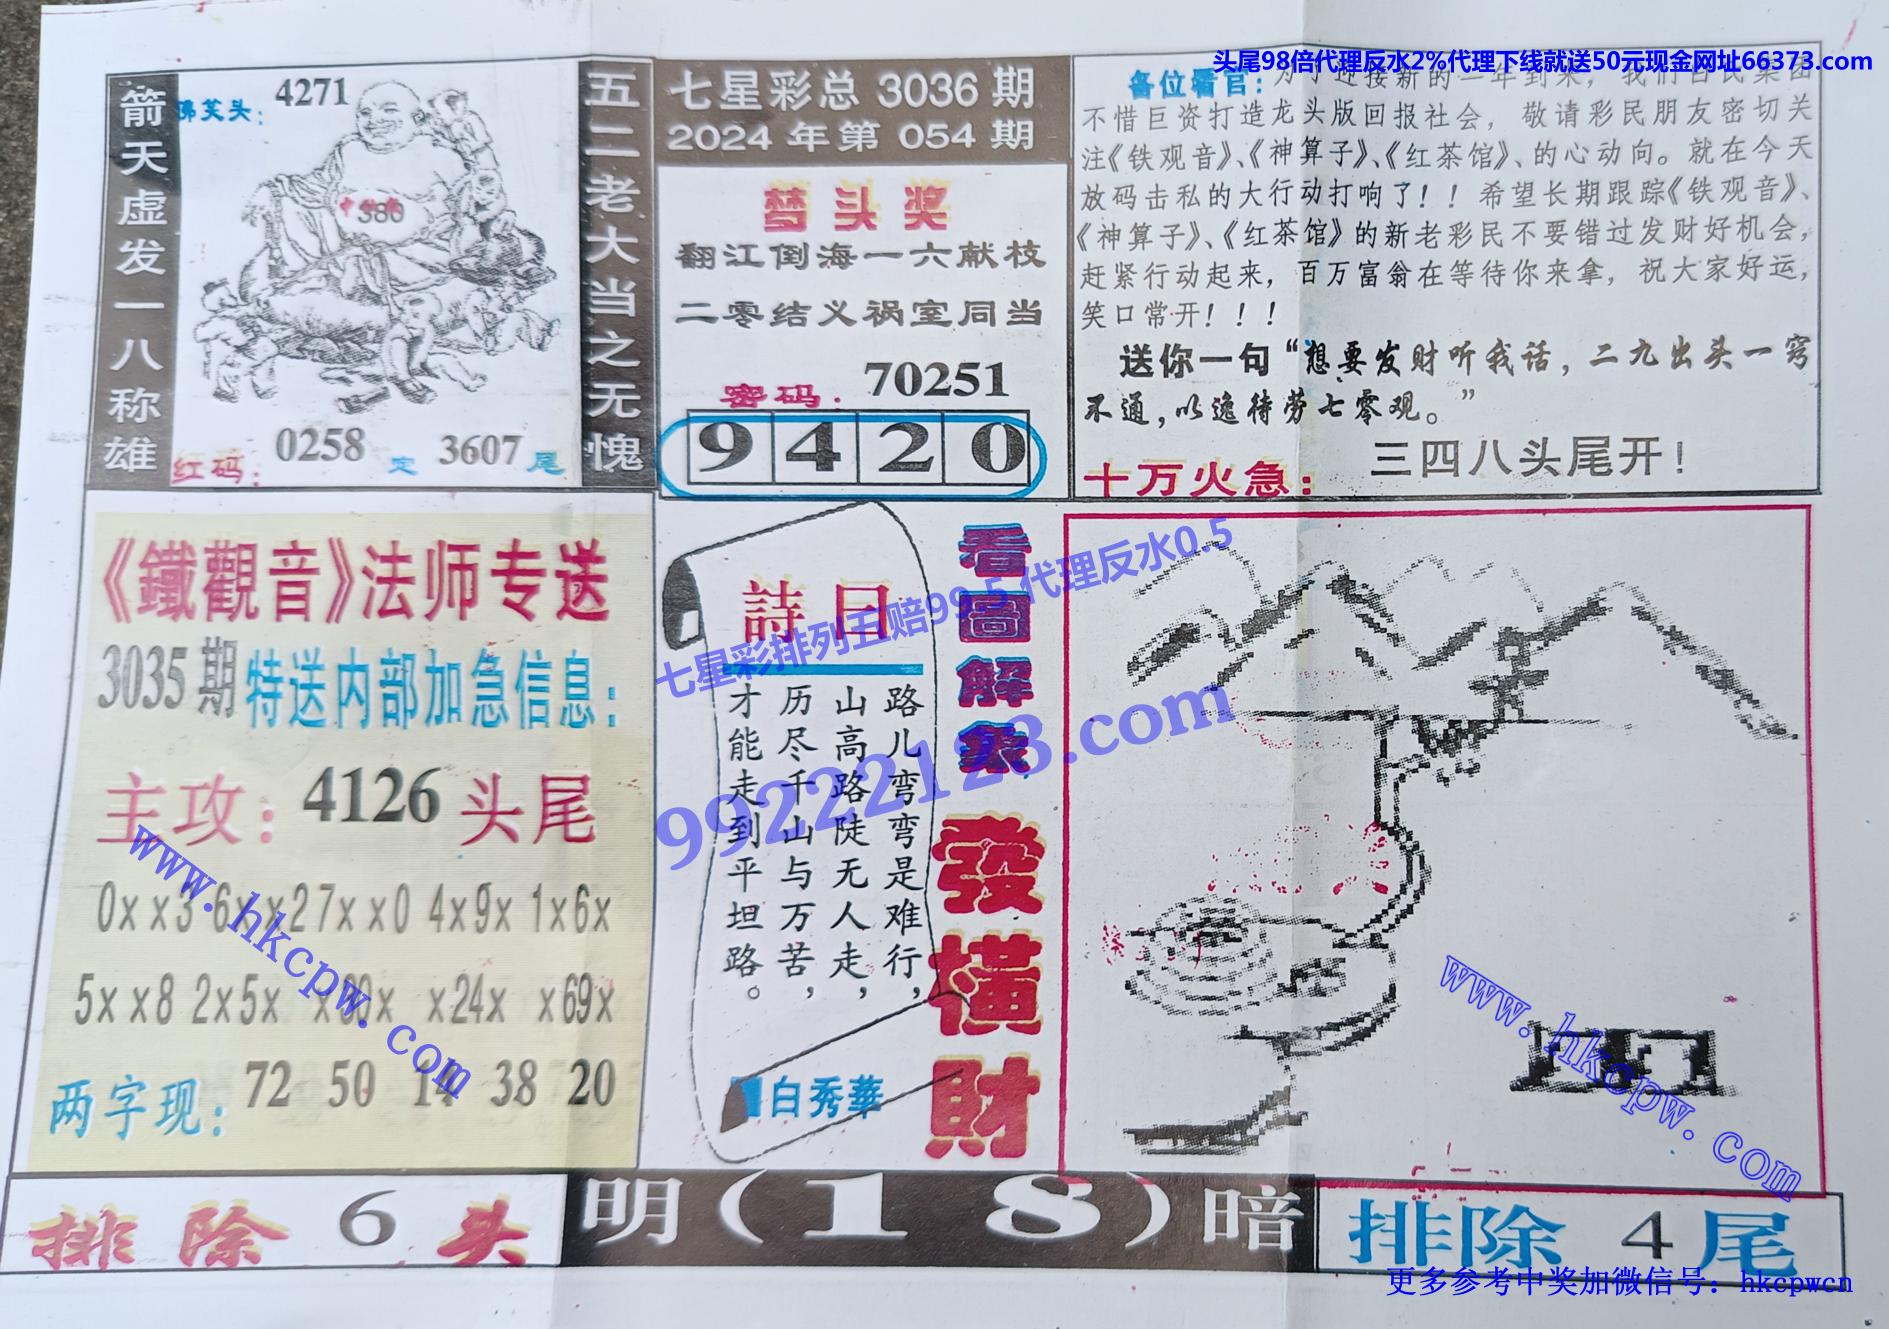 头尾98倍代理反水2%代理下线就送50元现金网址66373.com
箭天虚发一八称雄
佛笑头：
4271
380
红码：
0258
定
3607
尾
五二老大当之无愧
七星彩总 3036 期
2024 年第 054 期
梦头奖
翻江倒海一六献枝
二零结义祸室同当
密码：
70251
9 4 2 0
各位看官：为了迎接新的一年到来，我们百民集团
不惜巨资打造龙头版回报社会，敬请彩民朋友密切关
注《铁观音》、《神算子》、《红茶馆》、的心动向。就在今天
放码击私的大行动打响了！！希望长期跟踪《铁观音》、
《神算子》、《红茶馆》的新老彩民不要错过发财好机会，
赶紧行动起来，百万富翁在等待你来拿，祝大家好运，
笑口常开！！！
送你一句“想要发财听我话，二九出头一窍
不通，以逸待劳七零观。”
十万火急：
三四八头尾开！
《鐵觀音》法师专送
3035期 特送内部加急信息：
主攻：4126 头尾
0xx3 6xx2 7xx0 4x9x 1x6x
5xx8 2x5x x80x x24x x69x
两字现：
72 50 14 38 20
詩曰
路儿弯弯是难行，
山高路陡无人走，
历尽千山与万苦，
才能走到平坦路。
白秀華
看圖解象
發橫財
七星彩排列五赔99.5 代理反水0.5
99222123.com
www.hkcpw.com
www.hkcpw.com
排除 6 头
明(18)暗
排除 4 尾
更多参考中奖加微信号：hkcpwcn